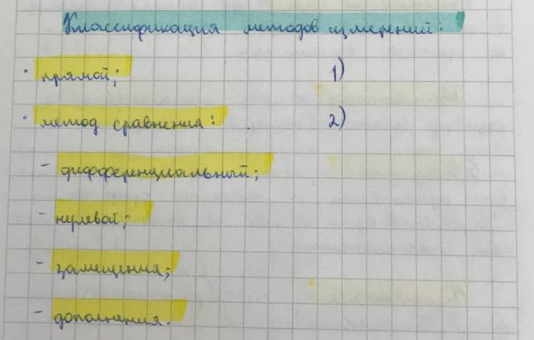 Классификация методов измерений:
· прямой; 1)
· метод сравнения: 2)
- дифференциальный;
- нулевой;
- замещения;
- дополнения.